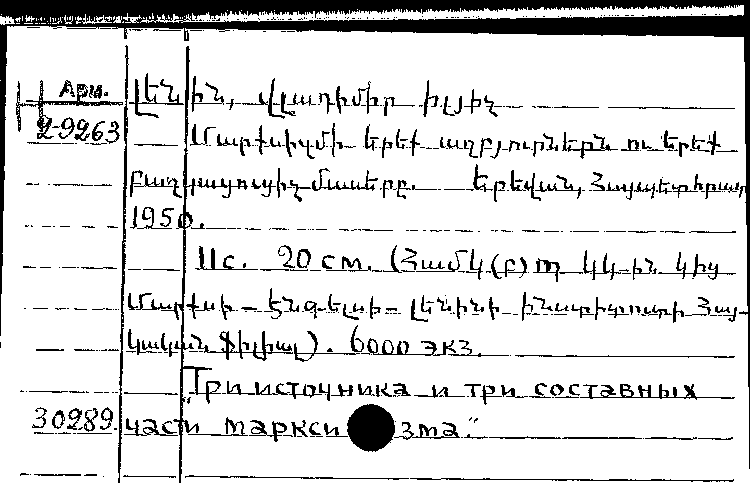 Арм. Լենին, Վլադիմիր Իլյիչ
2-9263 Մարքսիզմի երեք աղբյուրներն ու երեք
բաղկացուցիչ մասերը. Երեվան, Հայպետհրատ
1950.
11 с. 20 см. (Համկ(բ)Պ ԿԿ-ին կից
Մարքսի-Էնգելսի-Լենինի ինստիտուտի Հայ-
կական Ֆիլիալ). 6000 экз.
„Три источника и три составных
30289. части марксизма."